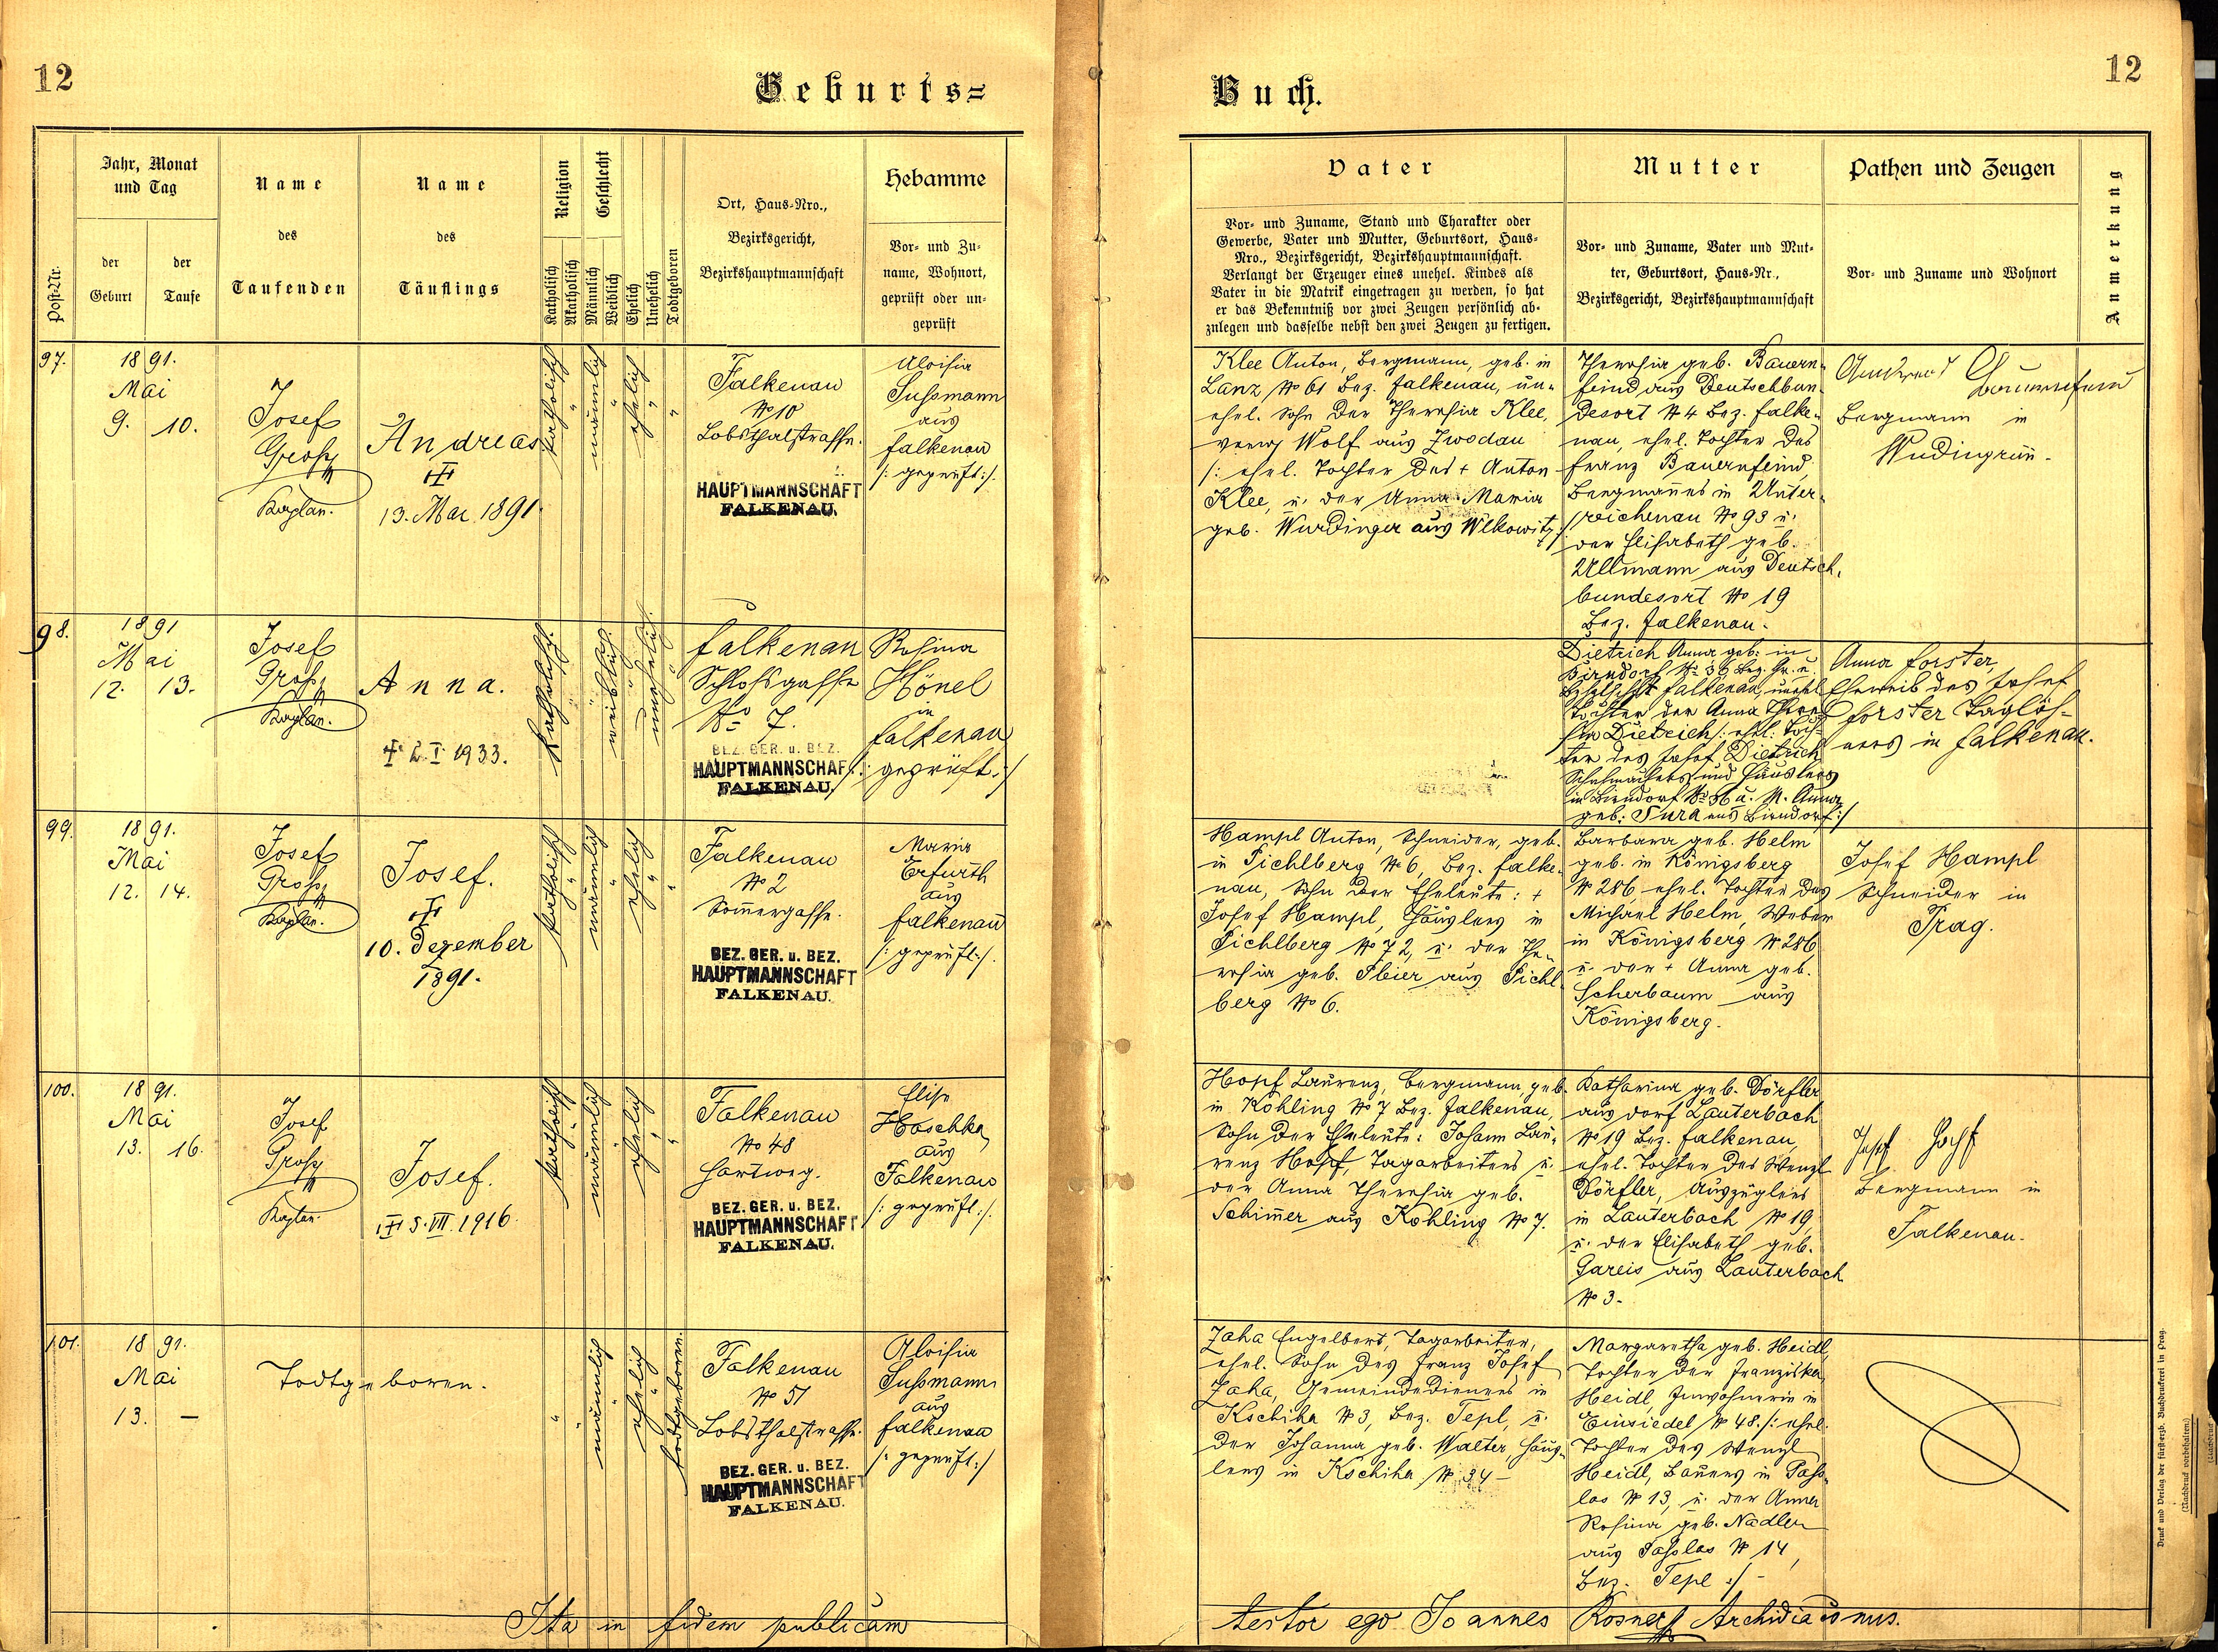 12
Geburts=
Jahr, Monat
und Tag
Post-Nr.
der
Geburt
der
Taufe
Name
des
Taufenden
Name
des
Täuflings
Religion
Katholisch
Akatholisch
Geschlecht
Männlich
Weiblich
Ehelich
Unehelich
Todtgeboren
Ort, Haus-Nro.,
Bezirksgericht,
Bezirkshauptmannschaft
Hebamme
Vor- und Zu-
name, Wohnort,
geprüft oder un-
geprüft
97.
1891.
Mai
9. 10.
Josef
Grosz
Kaplan.
Andreas
13. Mai 1891.
katholisch
männlich
ehelich
Falkenau
No 10
Lobsthalstrasse.
HAUPTMANNSCHAFT
FALKENAU.
Aloisia
Sussmann
aus
Falkenau
/: geprüft :/.
98.
1891
Mai
12. 13.
Josef
Grosz
Kaplan.
Anna.
2. I. 1933.
katholisch.
weiblich.
unehelich.
Falkenau
Schlossgasse
No 7.
BEZ. GER. u. BEZ.
HAUPTMANNSCHAFT
FALKENAU.
Rosina
Hönel
in
Falkenau
/: geprüft :/
99.
1891.
Mai
12. 14.
Josef
Grosz
Kaplan.
Josef.
10. Dezember
1891.
katholisch
männlich
ehelich
Falkenau
No 2
Sommergasse.
BEZ. GER. u. BEZ.
HAUPTMANNSCHAFT
FALKENAU.
Maria
Erfurth
aus
Falkenau
/: geprüft :/.
100.
1891.
Mai
13. 16.
Josef
Grosz
Kaplan.
Josef.
5. VII. 1916.
katholisch
männlich
ehelich
Falkenau
No 48
Hartweg.
BEZ. GER. u. BEZ.
HAUPTMANNSCHAFT
FALKENAU.
Elise
Hoschka
aus
Falkenau
/: geprüft :/.
101.
1891.
Mai
13. —
Todtgeboren.
männlich
ehelich
todtgeboren.
Falkenau
No 51
Lobsthalstrasse.
BEZ. GER. u. BEZ.
HAUPTMANNSCHAFT
FALKENAU.
Aloisia
Sussmann
aus
Falkenau
/: geprüft :/
Ita in fidem publicam
Buch.
12
Vater
Vor- und Zuname, Stand und Charakter oder
Gewerbe, Vater und Mutter, Geburtsort, Haus-
Nro., Bezirksgericht, Bezirkshauptmannschaft.
Verlangt der Erzeuger eines unehel. Kindes als
Vater in die Matrik eingetragen zu werden, so hat
er das Bekenntniß vor zwei Zeugen persönlich ab-
zulegen und dasselbe nebst den zwei Zeugen zu fertigen.
Mutter
Vor- und Zuname, Vater und Mut-
ter, Geburtsort, Haus-Nr.,
Bezirksgericht, Bezirkshauptmannschaft
Pathen und Zeugen
Vor- und Zuname und Wohnort
Anmerkung
Klee Anton, Bergmann, geb. in
Lanz No 61 Bez. Falkenau, un-
ehel. Sohn der Theresia Klee,
verw. Wolf aus Zwodau
/: ehel. Tochter des + Anton
Klee, u. der Anna Maria
geb. Wurdinger aus Wlkowitz :/
Theresia geb. Bauern-
feind aus Deutschbun-
desort No 4 Bez. Falke-
nau, ehel. Tochter des
Franz Bauernfeind,
Bergmannes in Unter-
reichenau No 93 u.
der Elisabeth geb.
Ullmann aus Deutsch-
bundesort No 19
Bez. Falkenau.
Andreas Bauernfeind
Bergmann in
Wudingrün.
Dietrich Anna geb: in
Birndorf No 36 Bez. Gr. u.
Falkenau, unehel
Tochter der Anna There-
sia Dietrich /: ehel: Toch-
ter des Josef Dietrich
Schuhmachers und Häuslers
in Birndorf No 36 u. M. Anna
geb: Tura aus Birndorf :/
Anna Forster,
Eheweib des Josef
Forster Taglöh-
ners in Falkenau.
Hampl Anton, Schneider, geb.
in Pichlberg No 6, Bez. Falke-
nau, Sohn der Eheleute: +
Josef Hampl, Häuslers in
Pichlberg No 72, u. der The-
resia geb. Pleier aus Pichl-
berg No 6.
Barbara geb. Helm
geb. in Königsberg
No 286, ehel. Tochter des
Michael Helm, Weber
in Königsberg No 286
u. der + Anna geb.
Scherbaum aus
Königsberg.
Josef Hampl
Schneider in
Prag.
Hopf Laurenz, Bergmann, geb.
in Kohling No 7 Bez. Falkenau,
Sohn der Eheleute: Johann Lau-
renz Hopf, Tagarbeiters u.
der Anna Theresia geb.
Schimmer aus Kohling No 7.
Katharina geb. Dörfler
aus Dorf Lauterbach
No 19 Bez. Falkenau,
ehel. Tochter des Wenzl
Dörfler, Auszüglers
in Lauterbach No 19,
u. der Elisabeth geb.
Gareis aus Lauterbach
No 3.
Josef Hopf
Bergmann in
Falkenau.
Zaha Engelbert, Tagarbeiter,
ehel. Sohn des Franz Josef
Zaha, Gemeindedieners in
Kschiha No 3, Bez. Tepl, u.
der Johanna geb. Walter, Häus-
lers in Kschiha No 34 —
Margaretha geb. Heidl,
Tochter der Franziska
Heidl, Inwohnerin in
Einsiedel No 48. /: ehel.
Tochter des Wenzl
Heidl, Bauers in Pass-
las No 13, u. der Anna
Rosina geb. Nadler
aus Passlas No 14,
Bez. Tepl :/ —
testor ego Joannes Rosner Archidiaconus.
Druck und Verlag der fürsterzb. Buchdruckerei in Prag.
(Nachdruck vorbehalten.)